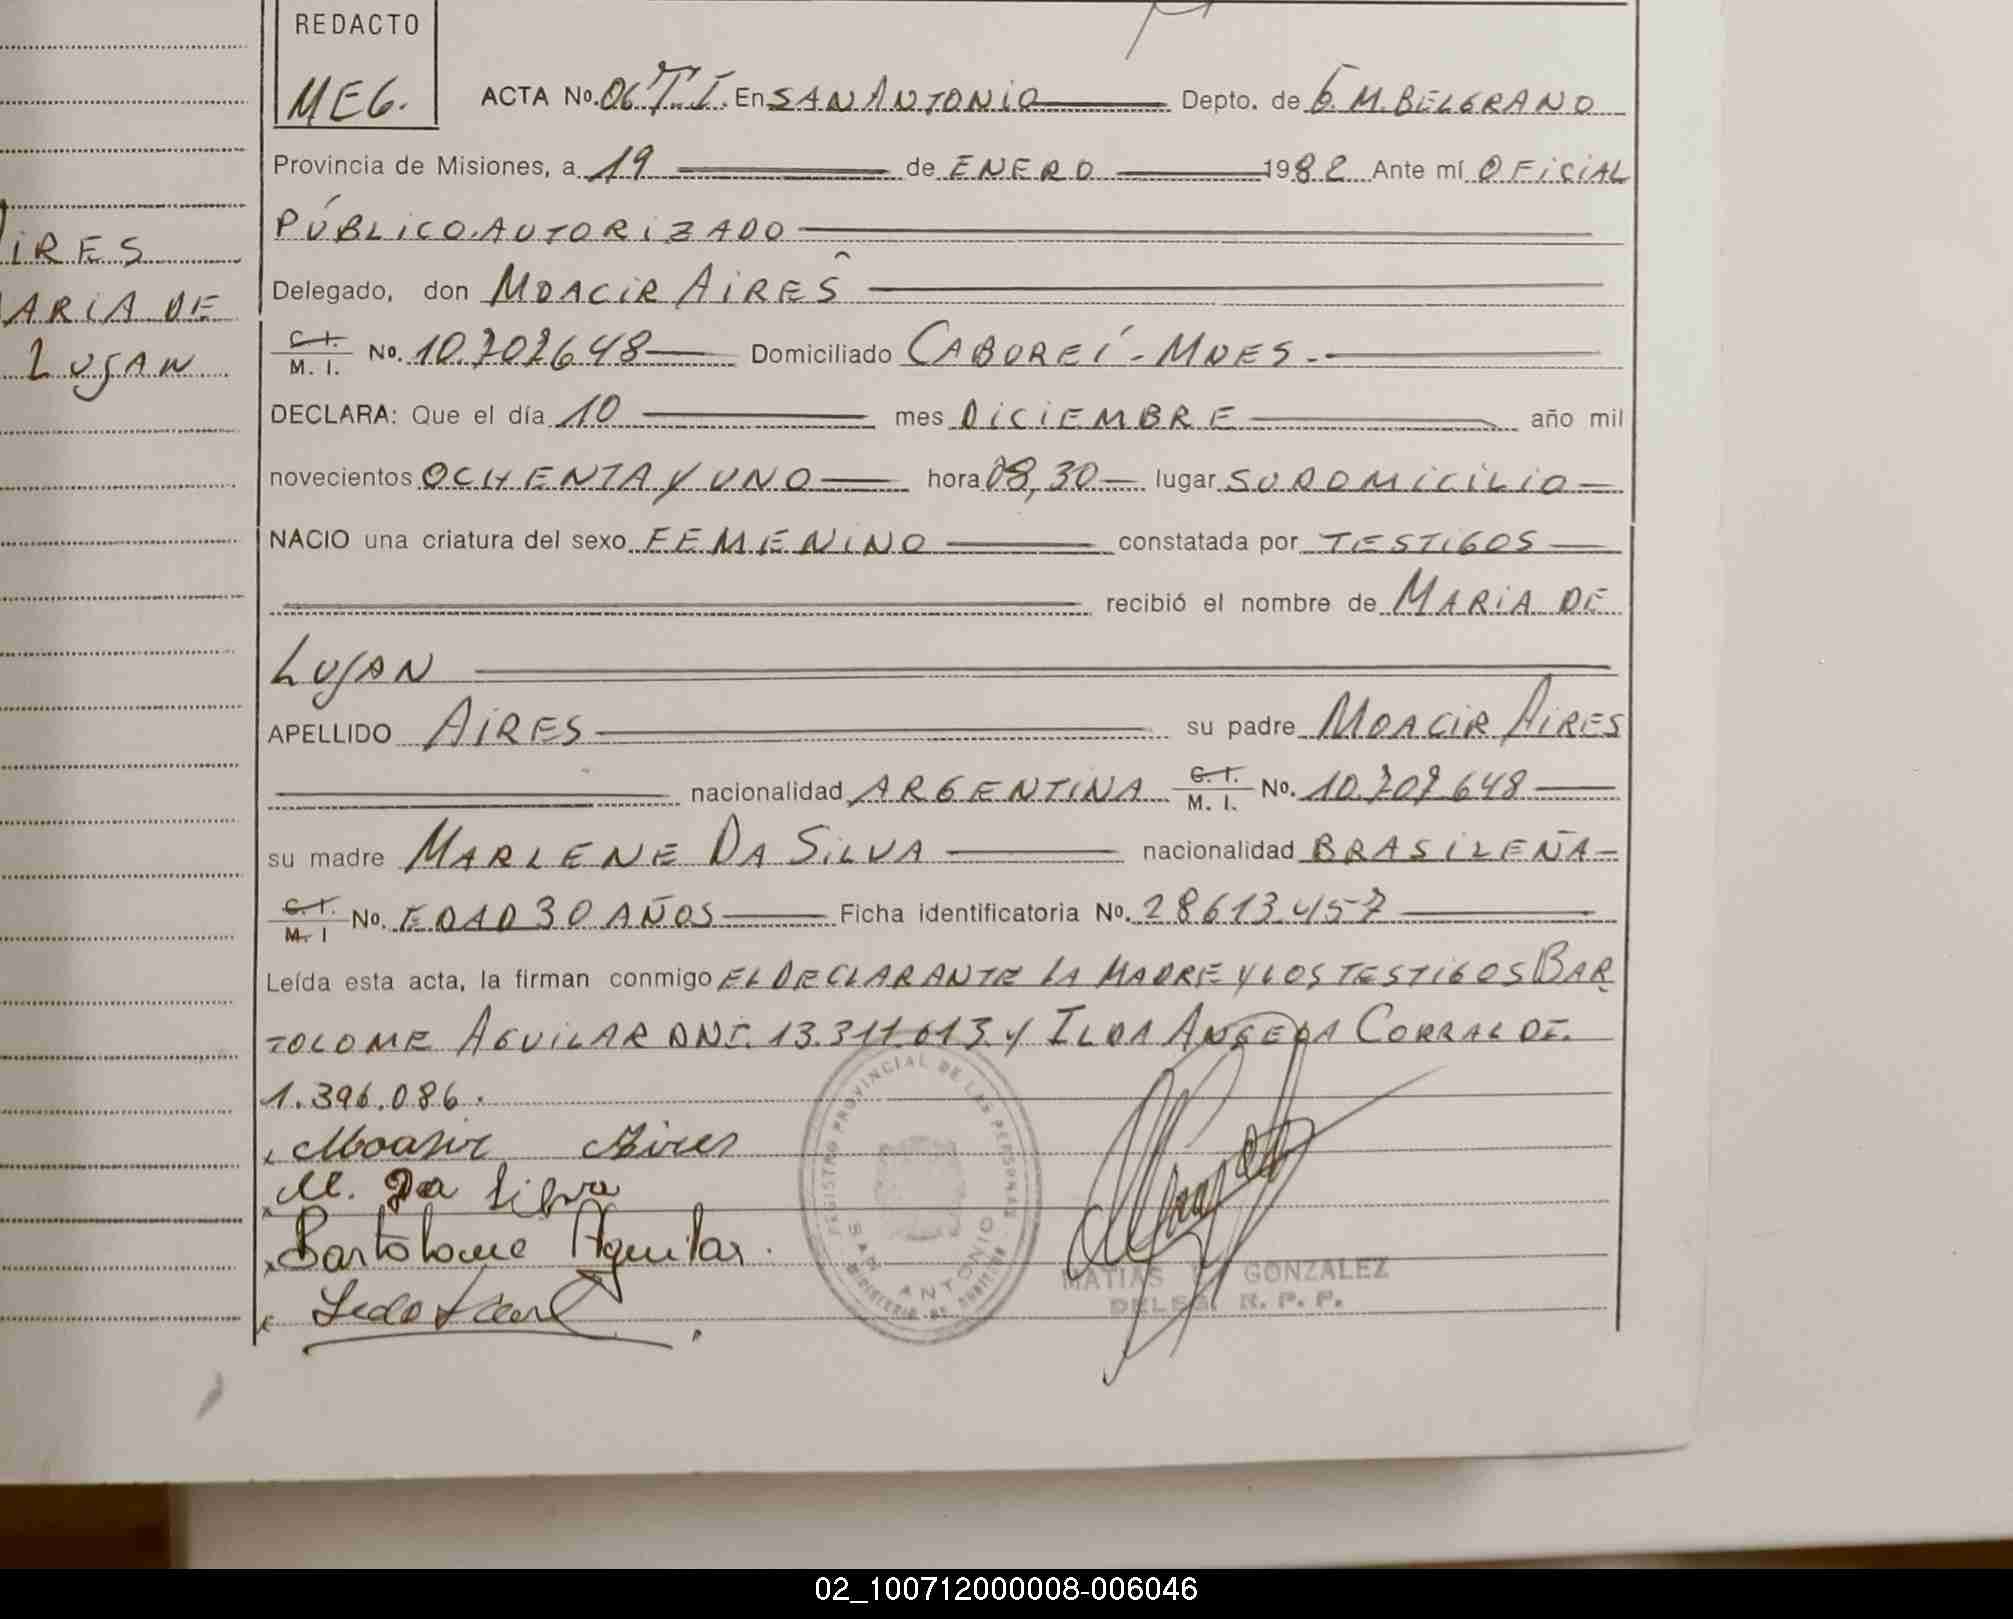 REDACTO
MEG.
ACTA No. 06 T.I. En SAN ANTONIO Depto. de G. M. BELGRANO
Provincia de Misiones, a 19 de ENERO 1982 Ante mí OFICIAL
PÚBLICO AUTORIZADO
Delegado, don MOACIR AIRES
C.I. M. I. No. 10.702648 Domiciliado CABUREÍ - MNES.-
DECLARA: Que el día 10 mes DICIEMBRE año mil
novecientos OCHENTA Y UNO hora 08,30 lugar SU DOMICILIO
NACIO una criatura del sexo FEMENINO constatada por TESTIGOS
recibió el nombre de MARIA DE
LUJAN
APELLIDO AIRES su padre MOACIR AIRES
nacionalidad ARGENTINA C.I. M. I. No. 10.702.648
su madre MARLENE DA SILVA nacionalidad BRASILEÑA
C.I. M. I No. EDAD 30 AÑOS Ficha identificatoria No. 28613.457
Leída esta acta, la firman conmigo EL DECLARANTE LA MADRE Y LOS TESTIGOS BAR
TOLOME AGUILAR DNI. 13.311.613 Y ILDA ANGELA CORRAL DI.
1.396.086.
Moasir Aires
M. Da Silva
Bartolome Aguilar.
REGISTRO PROVINCIAL DE LAS PERSONAS
SAN ANTONIO
MATIAS GONZALEZ
DELEG. R. P. P.
IRES
ARIA DE
LUJAN
02_100712000008-006046